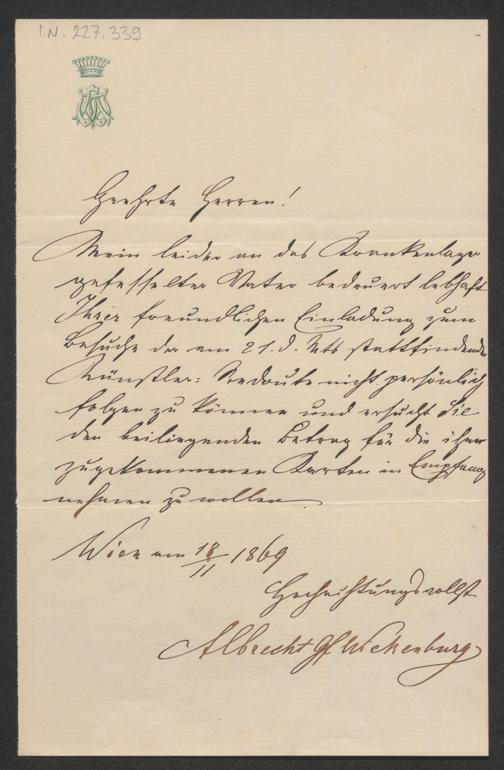 I.N. 227.339
Geehrte Herren!
Mein leider an das Krankenlager
gefesselter Vater bedauert lebhaft
Ihrer freundlichen Einladung zum
Besuche der am 21. d. Mts stattfindenden
Künstler-Redoute nicht persönlich
folgen zu können und ersucht Sie
den beiliegenden Betrag für die ihm
zugekommenen Karten in Empfang
nehmen zu wollen.
Wien am 18/II 1869
Hochachtungsvollst
Albrecht Gf Wickenburg